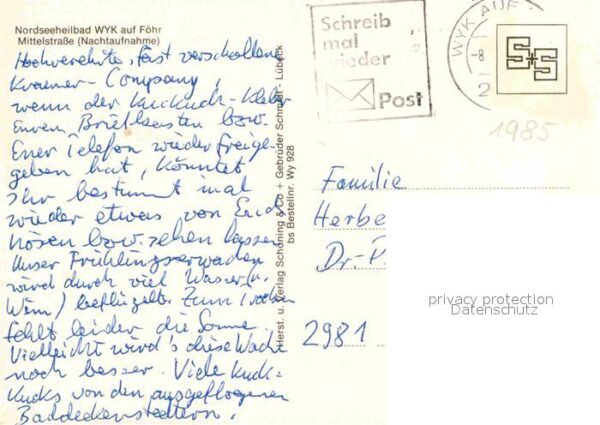 Nordseeheilbad WYK auf Föhr
Mittelstraße (Nachtaufnahme)
Hochverehrte, fast verschollene
Kraemer-Company,
wenn der Kuckuck-Kleber
Euren Briefkasten bzw.
Euer Telefon wieder freige-
geben hat, könntet
Ihr bestimmt mal
wieder etwas von Euch
hören bzw. sehen lassen.
Unser Frühlingserwachen
wird durch viel Wasser (u.
Wein) beflügelt. Zum
fehlt leider die Sonne.
Vielleicht wird's diese Woche
noch besser. Viele Kuck-
Kucks von den ausgeflogenen
Herst. u. Verlag Schöning & Co + Gebrüder Schmidt - Lübeck
bs Bestellnr. Wy 928
Schreib
mal
wieder
Post
WYK AUF
-8.
2
S+S
1985
Familie
Herbe
Dr.-
2981
privacy protection
Datenschutz